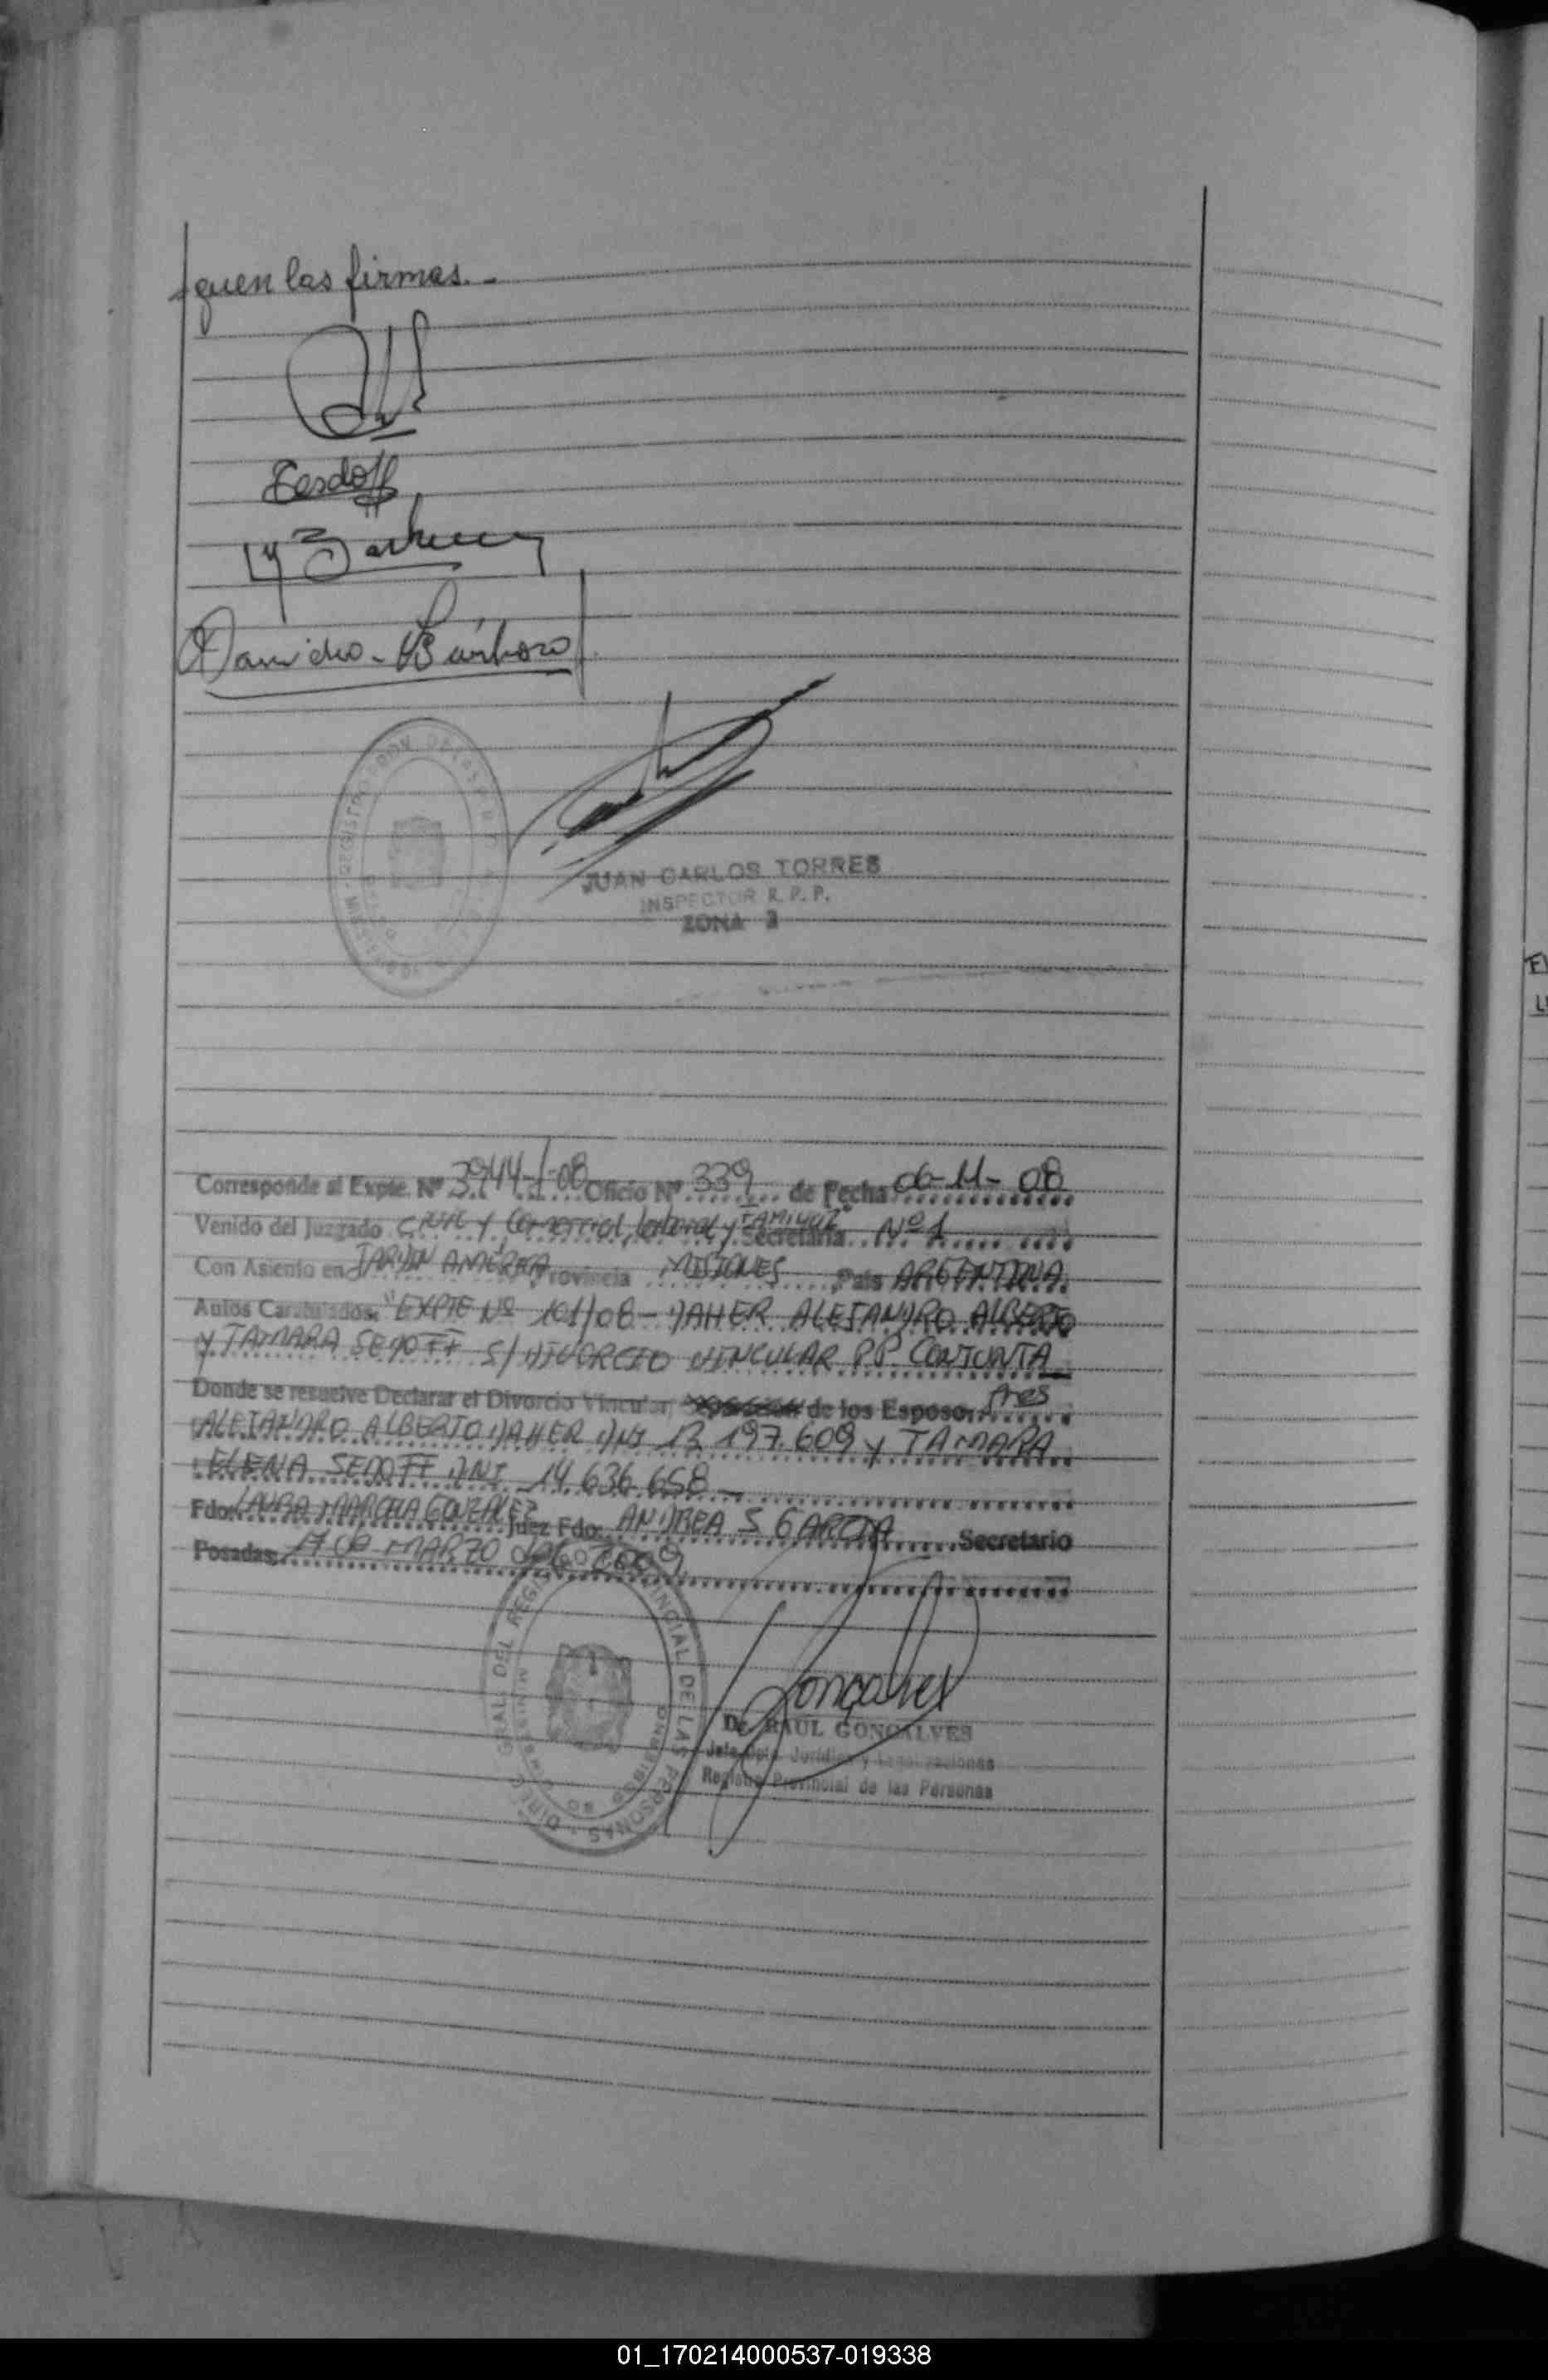 guen las firmas.-
JUAN CARLOS TORRES
INSPECTOR R. P. P.
ZONA 3
Corresponde al Expte. Nº 3944-I-08 Oficio Nº 339 de Fecha 06-11-08
Venido del Juzgado Civil y Comercial, laboral y FAMILIAR Secretaria Nº 1
Con Asiento en JARDIN AMÉRICA Provincia MISIONES Pais ARGENTINA
Autos Caratulados: "EXPTE Nº 101/08 - DAHER ALEJANDRO ALBERTO
y TAMARA SEDOFF S/ DIVORCIO VINCULAR P.P. CONJUNTA
Donde se resuelve Declarar el Divorcio Vincular, de los Esposo.
ALEJANDRO ALBERTO DAHER DNI 13.197.609 y TAMARA
ELENA SEDOFF DNI 14.636.658
Fdo: LAURA MARCELA GONZALEZ Juez Fdo: ANDREA S GARCIA Secretario
Posadas, 17 de MARZO del 2009
Gonçalves
Dr. RAUL GONÇALVES
Jefe Dpto. Jurídico y Legalizaciones
Registro Provincial de las Personas
01_170214000537-019338